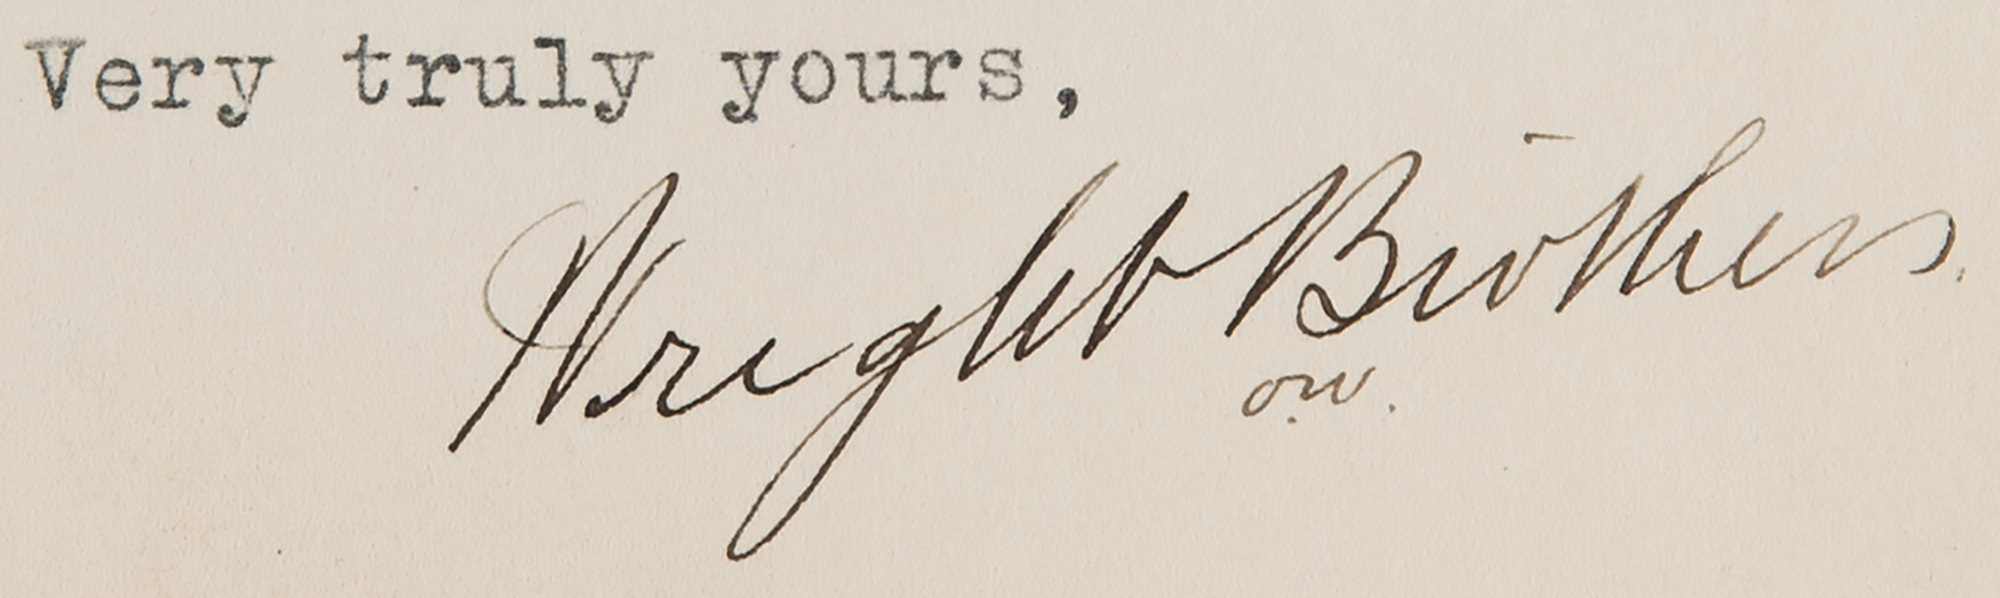 Very truly yours,
Wright Brothers.
OW.